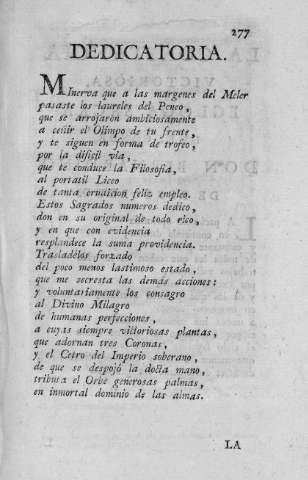 277
DEDICATORIA.
MInerva que a las margenes del Meler
pasaste los laureles del Peneo,
que se arrojaron ambiciosamente
a ceñir el Olimpo de tu frente,
y te siguen en forma de trofeo,
por la dificil via,
que te conduce la Filosofia,
al portatil Liceo
de tanta erudicion feliz empleo.
Estos Sagrados numeros dedico,
don en su original de todo rico,
y en que con evidencia
resplandece la suma providencia.
Trasladélos forzado
del poco menos lastimoso estado,
que me secresta las demás acciones:
y voluntariamente los consagro
al Divino Milagro
de humanas perfecciones,
a cuyas siempre victoriosas plantas,
que adornan tres Coronas,
y el Cetro del Imperio soberano,
de que se despojó la docta mano,
tributa el Orbe generosas palmas,
en inmortal dominio de las almas.
LA